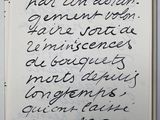 par un déran-
gement volon-
taire sorti de
réminiscences
de bouquets
morts depuis
longtemps.
qui ont laissé